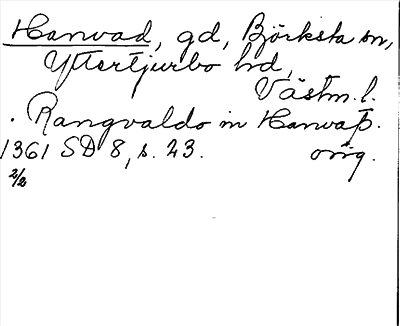 Hanvad, gd, Björksta sn,
Yttertjurbo hd,
Västm. l.
. Rangvaldo in Hanvaþ.
1361 SD 8, s. 23. orig.
2/2